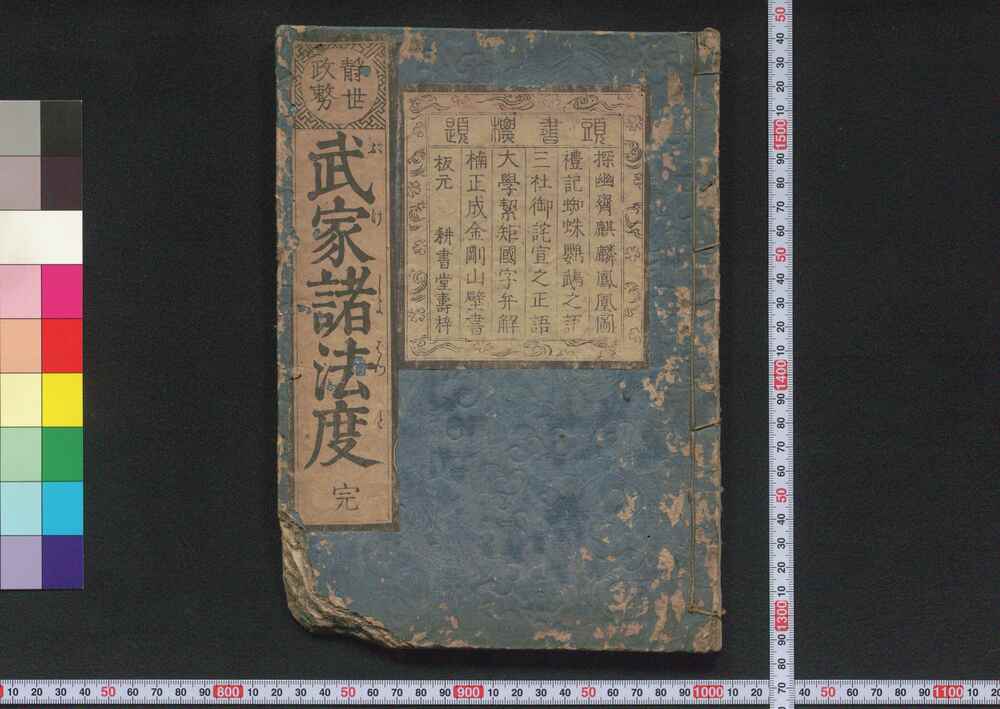 静世
政務
武家諸法度
ぶけしよはつと
完
頭書標題
探幽齋麒麟鳳凰圖
禮記蜘蛛鸚鵡之語
三社御詫宣之正語
大學絜矩國字弁解
楠正成金剛山壁書
板元 耕書堂壽梓
50 40 30 20 10 1500 90 80 70 60 50 40 30 20 10 1400 90 80 70 60 50 40 30 20 10 1300 90 80 70
10 20 30 40 50 60 70 80 90 800 10 20 30 40 50 60 70 80 90 900 10 20 30 40 50 60 70 80 90 1000 10 20 40 50 60 70 80 90 1100 10